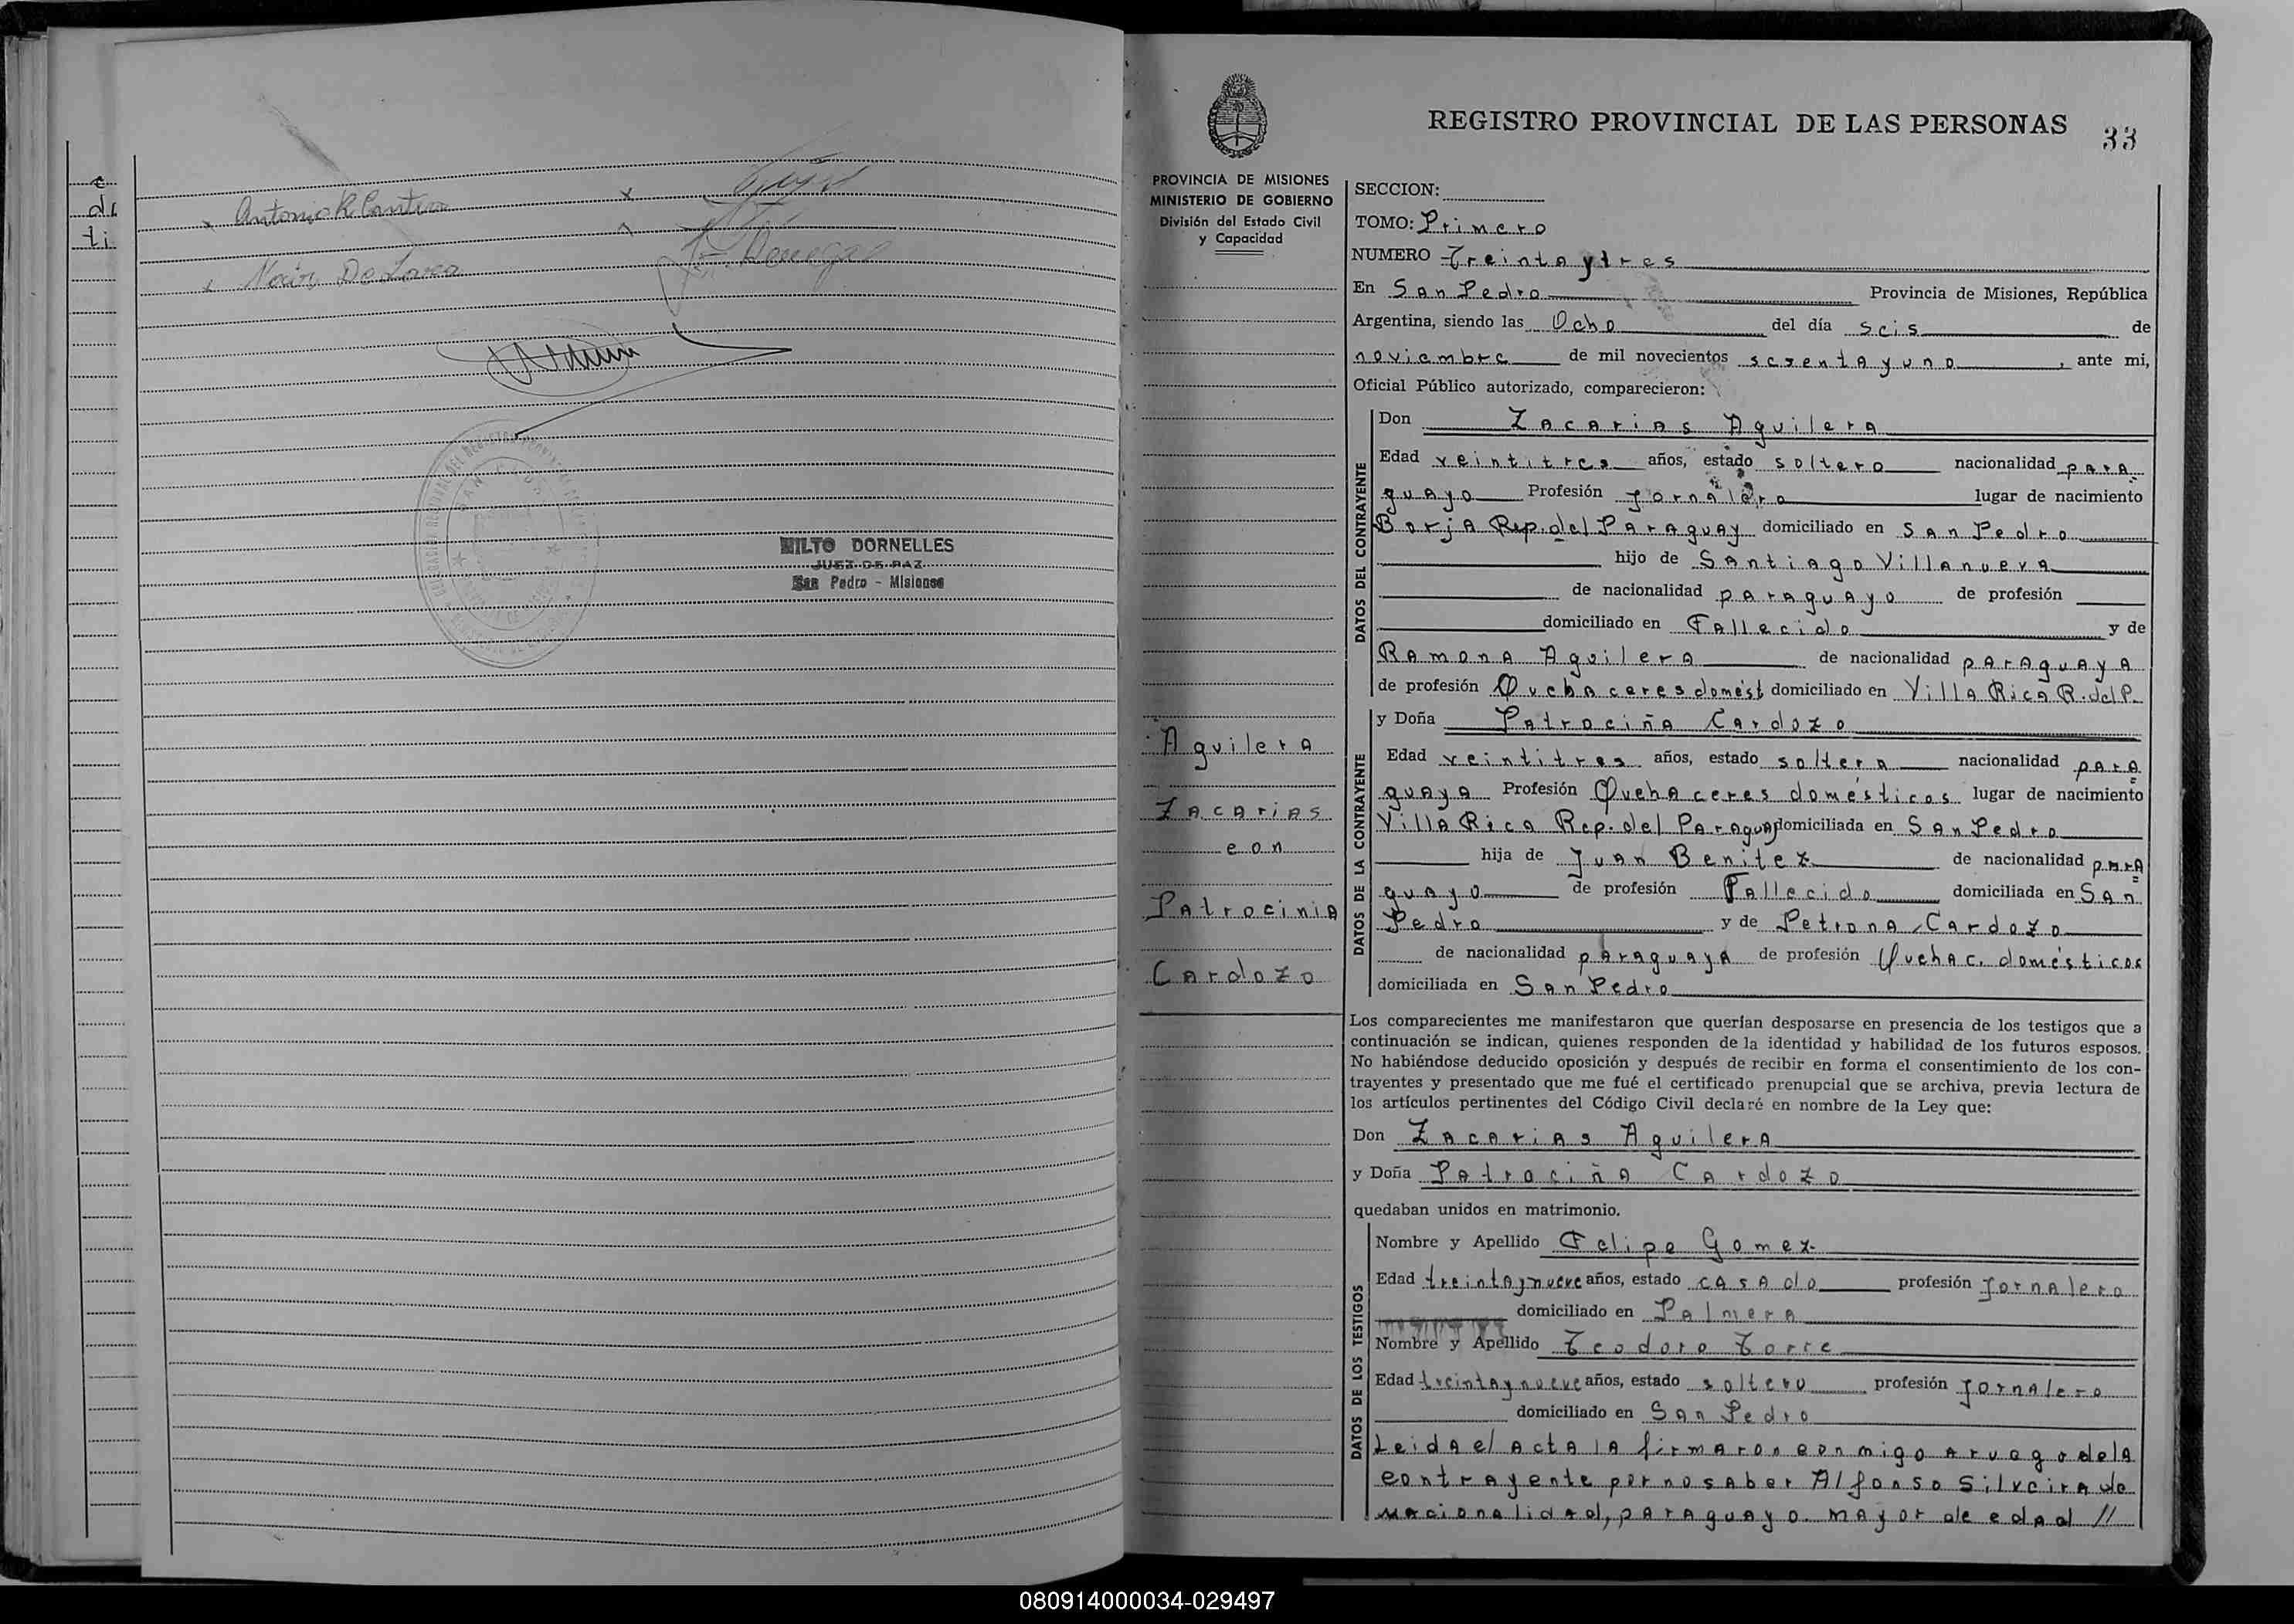 c
di
ti
Antonio R Cantero
Noir De Lara
MILTO DORNELLES
JUEZ DE PAZ
San Pedro - Misiones
REGISTRO PROVINCIAL DE LAS PERSONAS 33
PROVINCIA DE MISIONES
MINISTERIO DE GOBIERNO
División del Estado Civil
y Capacidad
Aguilera
Zacarias
con
Patrocinia
Cardozo
SECCION:
TOMO: Primero
NUMERO Treinta y tres
En San Pedro Provincia de Misiones, República
Argentina, siendo las Ocho del día seis de
noviembre de mil novecientos sesenta y uno, ante mi,
Oficial Público autorizado, comparecieron:
DATOS DEL CONTRAYENTE
Don Zacarias Aguilera
Edad veintitres años, estado soltero nacionalidad para
guayo Profesión Jornalero lugar de nacimiento
Borja Rep. del Paraguay domiciliado en San Pedro
hijo de Santiago Villanueva
de nacionalidad paraguayo de profesión
domiciliado en Fallecido y de
Ramona Aguilera de nacionalidad paraguaya
de profesión Quehaceres domést domiciliado en Villa Rica R. del P.
DATOS DE LA CONTRAYENTE
y Doña Patrociña Cardozo
Edad veintitres años, estado soltera nacionalidad para=
guaya Profesión Quehaceres domésticos lugar de nacimiento
Villa Rica Rep. del Paraguay domiciliada en San Pedro
hija de Juan Benitez de nacionalidad para=
guayo de profesión Fallecido domiciliada en San
Pedro y de Petrona Cardozo
de nacionalidad paraguaya de profesión Quehac. domésticos
domiciliada en San Pedro
Los comparecientes me manifestaron que querían desposarse en presencia de los testigos que a
continuación se indican, quienes responden de la identidad y habilidad de los futuros esposos.
No habiéndose deducido oposición y después de recibir en forma el consentimiento de los con-
trayentes y presentado que me fué el certificado prenupcial que se archiva, previa lectura de
los artículos pertinentes del Código Civil declaré en nombre de la Ley que:
Don Zacarias Aguilera
y Doña Patrociña Cardozo
quedaban unidos en matrimonio.
DATOS DE LOS TESTIGOS
Nombre y Apellido Felipe Gomez
Edad treinta y nueve años, estado casado profesión Jornalero
domiciliado en Palmera
Nombre y Apellido Teodoro Torre
Edad treinta y nueve años, estado soltero profesión Jornalero
domiciliado en San Pedro
Leida el acta la firmaron conmigo a ruego de la
contrayente por no saber Alfonso Silveira de
nacionalidad, paraguayo. mayor de edad //
080914000034-029497